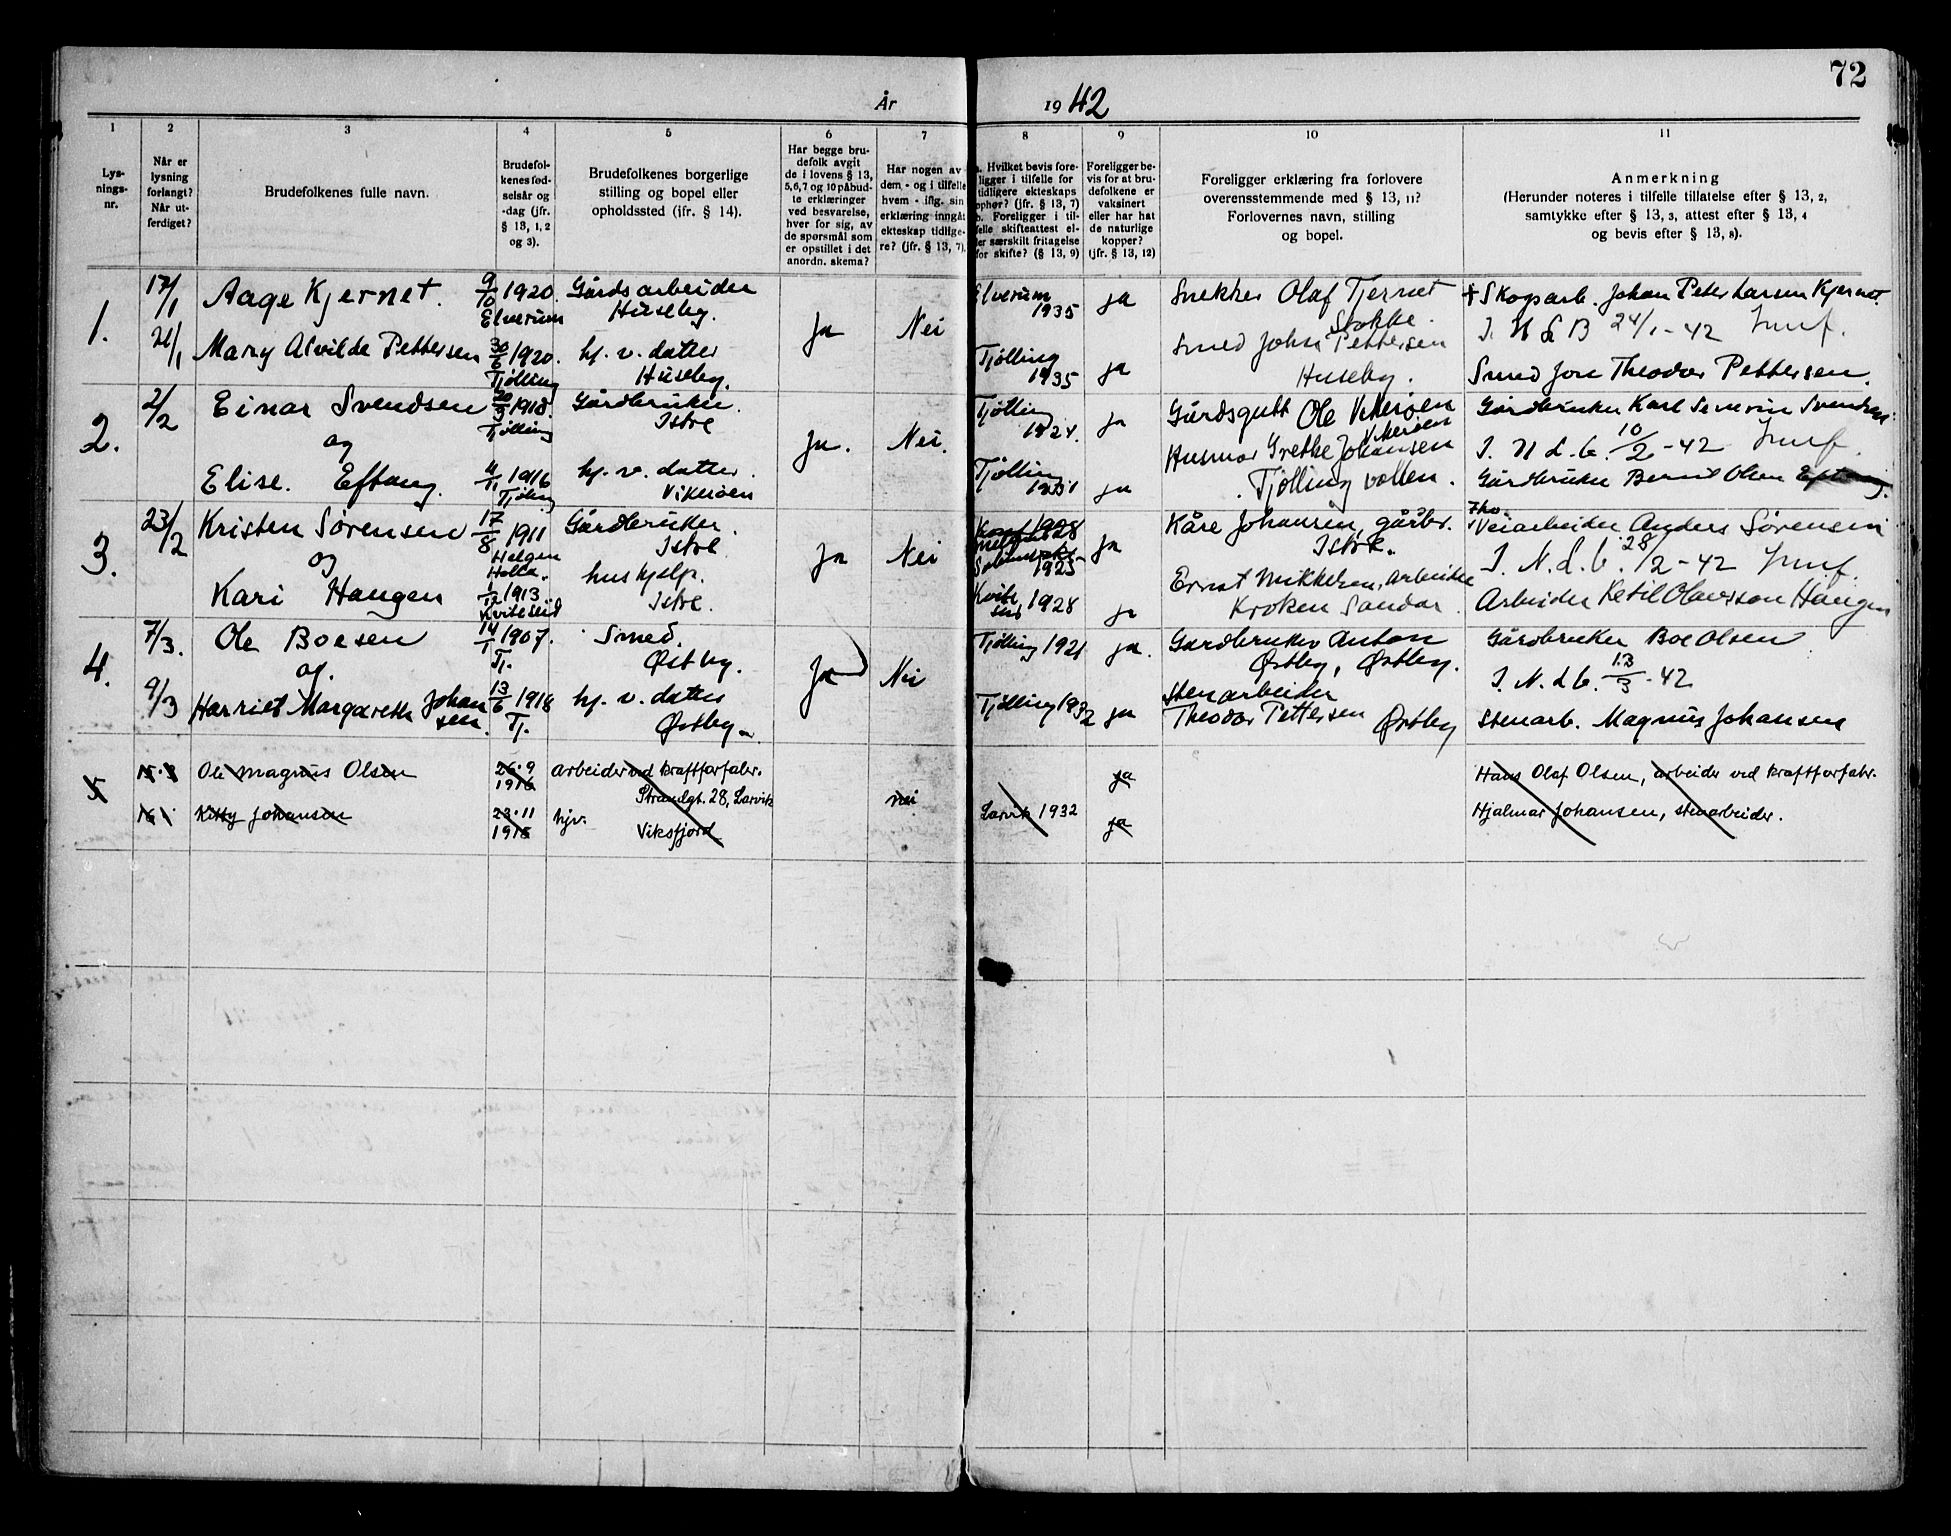 72
År 1942
1 2 3 4 5 6 7 8 9 10 11
Lys-
nings-
nr.
Når er
lysning
forlangt?
Når ut-
ferdiget?
Brudefolkenes fulle navn.
Brudefol-
kenes fød-
selsår og
-dag (jfr.
§ 13, 1, 2
og 3).
Brudefolkenes borgerlige
stilling og bopel eller
opholdssted (ifr. § 14).
Har begge bru-
defolk avgit
de i lovens § 13,
5, 6, 7 og 10 påbud-
te erklæringer
ved besvarelse,
hver for sig, av
de spørsmål som
er opstillet i det
anordn. skema?
Har nogen av
dem - og i tilfelle
hvem - iflg. sin
erklæring inngåt
ekteskap tidlige-
re? (jfr. § 13, 7).
Hvilket bevis fore-
ligger i tilfelle for
tidligere ekteskaps
ophør? (jfr. § 13, 7)
b. Foreligger i til-
felle skifteattest el-
ler særskilt fritagelse
for skifte? (§ 13, 9)
Foreligger be-
vis for at bru-
defolkene er
vaksinert
eller har hat
de naturlige
kopper?
(jfr. § 13, 12)
Foreligger erklæring fra forlovere
overensstemmende med § 13, 11?
Forlovernes navn, stilling
og bopel.
Anmerkning
(Herunder noteres i tilfelle tillatelse efter § 13, 2,
samtykke efter § 13, 3, attest efter § 13, 4
og bevis efter § 13, 8).
1.
17/1
21/1
Aage Kjernet.
Mary Alvilde Pettersen
9/10 1920.
Elverum
30/6 1920.
Tjølling
Gårdsarbeider
Huseby.
hj. v. datter
Huseby.
Ja
Nei
Elverum
1935
Tjølling
1935
ja
ja
Snekker Olaf Tjernet
Stokke.
Smed John Pettersen
Huseby.
+ Skogsarb. Johan Peter Larsen Kjernet.
I. N d B 24/1 - 42
Smed Jon Theodor Pettersen.
2.
2/2
Einar Svendsen
og
Elise. Eftang.
1918.
Tjølling
4/11 1916
Tjølling
Gårdbruker.
Istre
hj. v. datter.
Vikerøen
Ja.
Nei.
Tjølling
1924.
Tjølling
1931
ja
ja
Gårdsgutt Ole Vikerøen
Vikerøen
Husmor Grethe Johansen
Tjølling vollen.
Gårdbruker Karl Severin Svendsen.
I. N d. b. 10/2 - 42
Gårdbruker Bernt Olsen Eftang.
3.
23/2
Kristen Sørensen
og
Kari Haugen
17/8 1911
Helgen
Holla.
1/12 1913.
Kviteseid
Gårdbruker.
Istre.
hushjelp.
Istre.
Ja
Nei
1928
1925
Kvite
seid 1928
ja
ja
Kåre Johansen, gårbr.
Istre.
Ernst Mikkelsen, Arbeider
Kroken Sandar.
Veiarbeider Anders Sørensen
I. N. d. b. 28/2 - 42
Arbeider Ketil Olavsson Haugen
4.
7/3.
9/3
Ole Boesen
og.
Harriet Margareth Johan
sen.
14/1 1907.
Tj.
13/6 1918
Tj.
Smed.
Østby.
hj. v. datter
Østby.
Ja
Nei
Tjølling 1921
Tjølling 1932
ja.
ja
Gardbruker Anton
Østby, Østby.
Stenarbeider
Theodor Pettersen Østby
Gårdbruker Boe Olsen
I. N. d b. 13/3 - 42
Stenarb. Magnus Johansen
5
Ole Magnus Olsen
Kitty Johansen
26.9
1916
23.11
1915
arbeider ved kraftforfabr.
Strandgt. 28, Larvik
hjv.
Viksfjord
nei
Larvik 1932
ja
ja
Hans Olaf Olsen, arbeider ved kraftforfabr.
Hjalmar Johansen, stenarbeider.